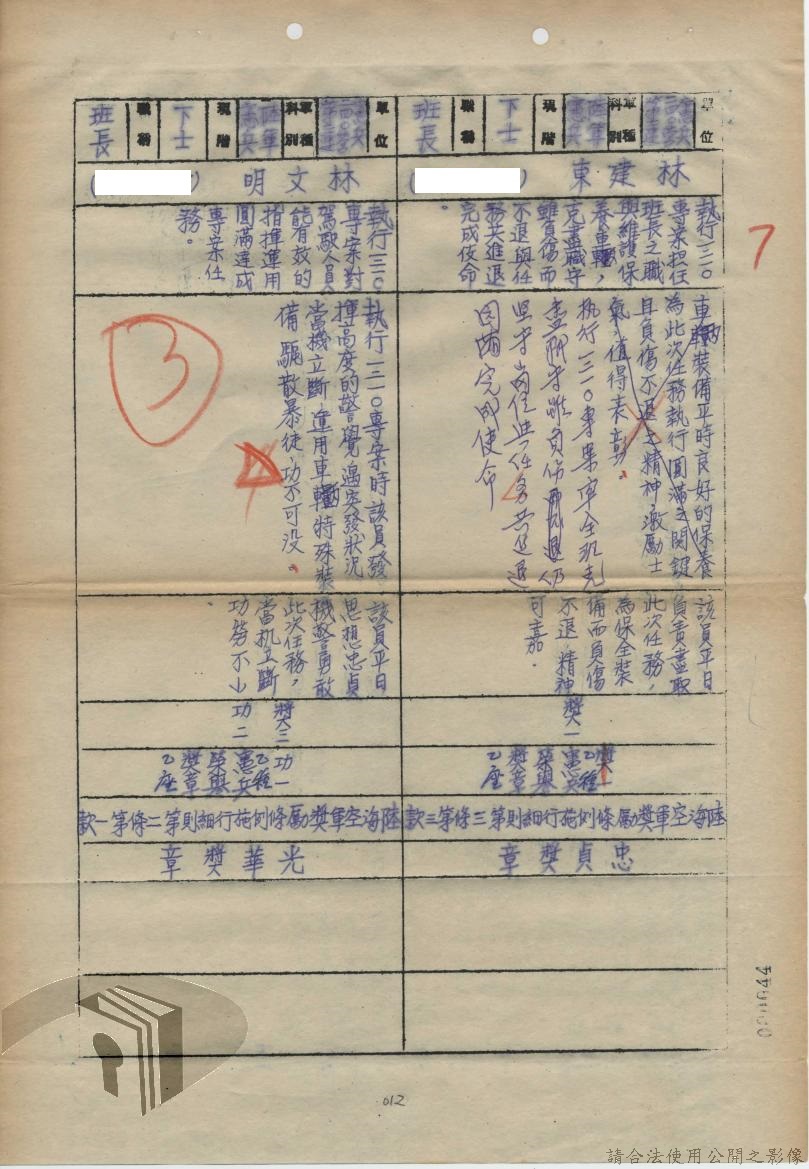 單位
軍種
科別
陸軍
憲兵
現階
下士
職稱
班長
林建東(
)
執行一三一〇
專案擔任
班長之職
與維護保
養車輛,
克盡職守
雖負傷而
不退與任
務共進退
完成使命
。
車輛裝備平時良好的保養
為此次任務執行圓滿之関鍵
且負傷不退之精神激勵士
氣,值得表彰。
執行一三一〇專案率全班克
盡職守雖負傷仍
坚守崗位與任務共進退
圆滿完成使命
該員平日
負責盡取
此次任務,
為保全裝
備而負傷
不退,精神
可嘉.
獎一
乙種一
憲兵
榮譽
獎章
乙座
陸海空軍獎勵條例施行細則第三條第三款
忠貞獎章
單位
軍種
科別
陸軍
憲兵
現階
下士
職稱
班長
林文明(
)
執行一三一〇
專案對
駕駛人員
能有效的
指揮運用
圓滿達成
專案任
務。
執行一三一〇專案時該員發
揮高度的警覺遇突發狀況
當機立斷運用車輛特殊裝
備驅散暴徒,功不可没。
該員平日
思想忠貞
機警勇敢
此次任務,
當机立斷
功勞不小
.
獎三
功二
功一
乙種
憲兵
榮譽
獎章
乙座
陸海空軍獎勵條例施行細則第二條第一款
光華獎章
7
3
012
請合法使用公開之影像